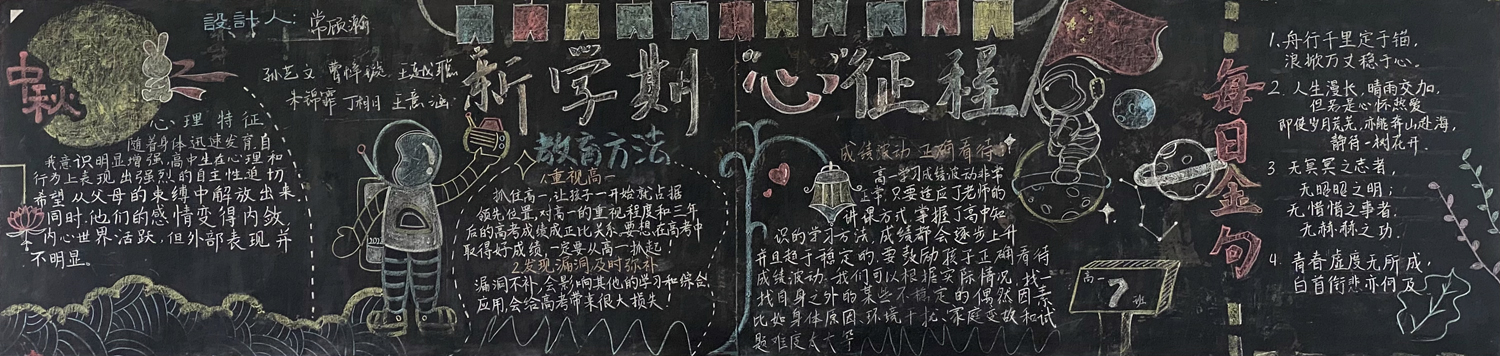 中秋
設計人:常欣瀚
孙艺文 曹惮
朱锦霏 丁相月 王意涵
新学期 心征程
心理特征
随着身体迅速发育,自
我意识明显增强,高中生在心理和
行为上表现出强烈的自主性迫切
希望从父母的束缚中解放出来.
同时,他们的感情变得内敛
内心世界活跃,但外部表现并
不明显。
2012
教育方法
1.重视高一
抓住高一,让孩子一开始就占据
领先位置,对高一的重视程度和三年
后的高考成绩成正比关系,要想在高考中
取得好成绩,一定要从高一抓起!
2.发现漏洞及时弥补
漏洞不补,会影响其他的学习和综合
应用,会给高考带来很大损失!
成绩波动,正确看待
高一学习成绩波动非常
正常,只要适应了老师的
讲课方式,掌握了高中知
识的学习方法,成绩都会逐步上升
并且趋于稳定的,要鼓励孩子正确看待
成绩波动.我们可以根据实际情况,找一
找自身之外的某些不稳定的偶然因素
比如身体原因、环境干扰、家庭变故和试
题难度太大等
高一7班
每日金句
1.舟行千里定于锚,
浪掀万丈稳于心。
2.人生漫长,晴雨交加,
但若是心怀热爱
即使岁月荒芜,亦能奔山赴海,
静待一树花开.
3 无冥冥之志者,
无昭昭之明;
无惛惛之事者,
无赫赫之功.
4.青春虚度无所成,
白首衔悲亦何及